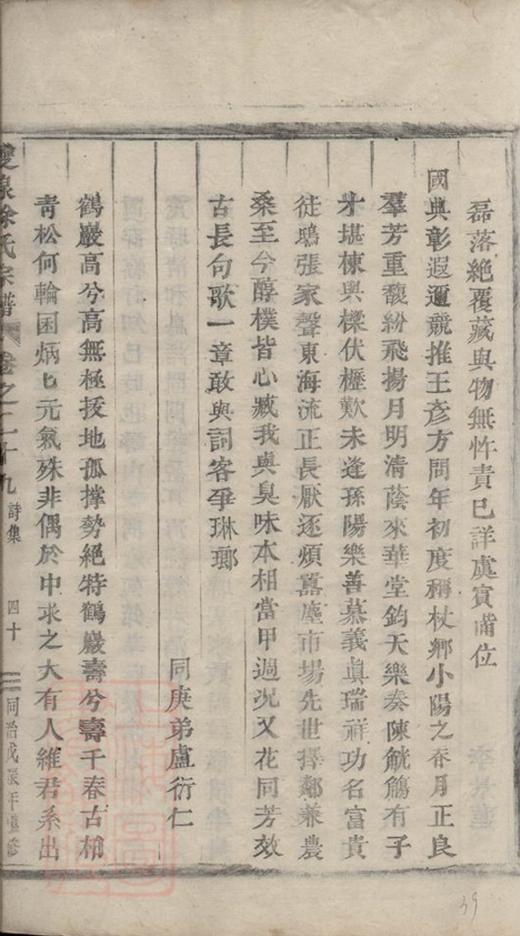 磊落絕覆藏與物無忤責已詳虞賓備位
國典彰遐邇競推王彥方問年初度稱杖鄉小陽之春月正良
羣芳重馥紛飛揚月明清蔭來華堂鈞天樂奏陳觥觴有子
才堪棟與樑伏櫪歎未逢孫陽樂善慕義眞瑞祥功名富貴
徒鴟張家聲東海流正長厭逐煩囂塵市場先世擇鄰兼農
桑至今醇樸皆心臧我與臭味本相當甲週況又花同芳效
古長句歌一章敢與詞客爭琳瑯
同庚弟盧衍仁
鶴巖高兮高無極拔地孤撐勢絕特鶴巖壽兮壽千春古柏
青松何輪囷炳七元氣殊非偶於中求之大有人維君系出
雙泉徐氏宗譜 卷之二十九 詩集 四十 同治戊辰年重修
39